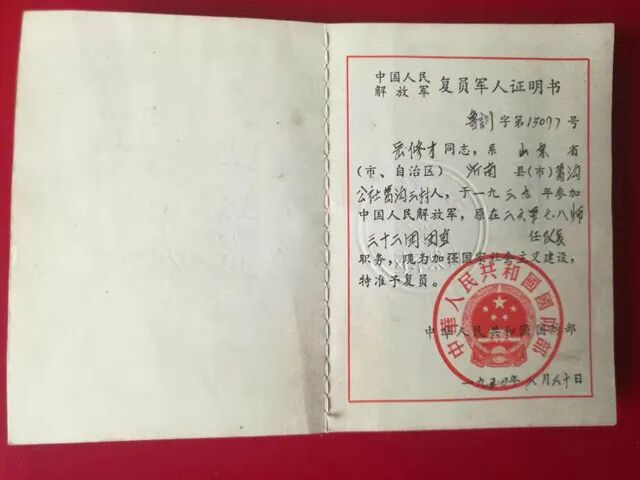 中国人民
解放军 复员军人证明书
鲁剀字第15097号
岳修才同志，系 山东 省
(市、自治区) 沂南 县(市)葛沟
公社葛沟三村人，于一九三九年参加
中国人民解放军，原在二六军七八师
三十二团 任
职务，现为加强国家社会主义建设，
特准予复员。
中华人民共和国国防部
一九五 年 八月六十日
中華人民共和國國防部